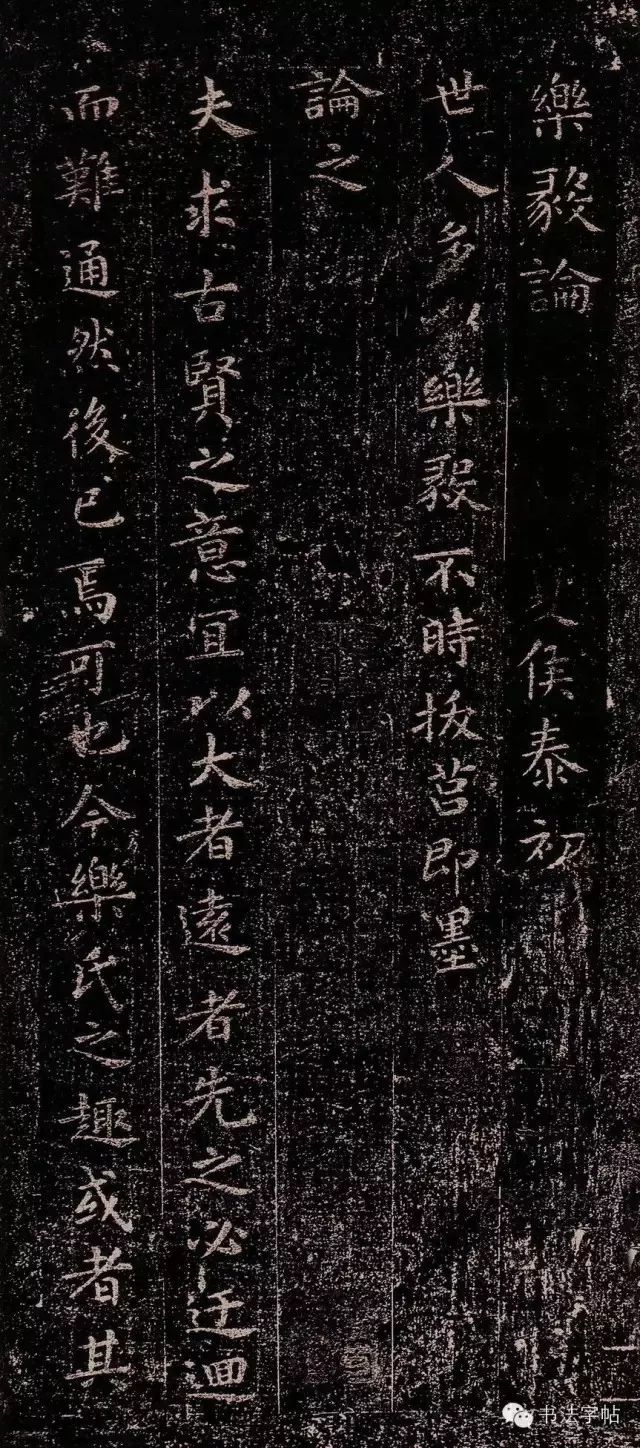 樂毅論
侯泰初
世人多以樂毅不時拔莒即墨
論之
夫求古賢之意宜以大者遠者先之必迂迴
而難通然後已焉可也今樂氏之趣或者其
书法字帖